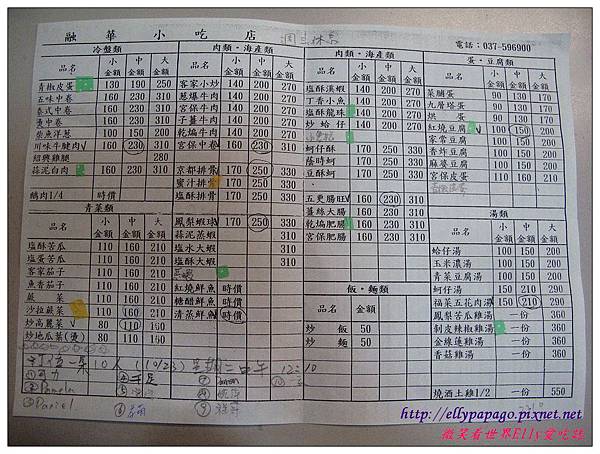 融華小吃店 周三休息 電話：037-596900
冷盤類
品名 小金額 中金額 大金額
青椒皮蛋 130 190 250
五味中卷 160 230 310
泰式中卷 160 230 310
燙中卷 160 230 310
柴魚洋蔥 100 150 200
川味牛腱肉 160 230 310
紹興雞腿 280
蒜泥白肉 160 230 310
鵝肉1/4 時價
青菜類
品名 小金額 中金額 大金額
塩酥苦瓜 110 160 210
塩蛋苦瓜 110 160 210
客家茄子 110 160 210
魚香茄子 110 160 210
蕨菜 110 160 210
沙拉蕨菜 110 160 210
炒高麗菜 80 110 160
炒地瓜葉(燙) 80 110 160
肉類‧海產類
品名 小金額 中金額 大金額
客家小炒 140 200 270
蔥爆牛肉 140 200 270
宮保牛肉 140 200 270
子薑牛肉 140 200 270
乾煸牛肉 140 200 270
宮保中卷 160 230 310
京都排骨 170 250 330
蜜汁排骨 170 250 330
鳳梨蝦球 170 250 330
蒜泥蒸蝦 310
塩水大蝦 310
塩酥大蝦 310
紅燒鮮魚 時價
糖醋鮮魚 時價
清蒸鮮魚 時價
肉類‧海產類
品名 小金額 中金額 大金額
塩酥溪蝦 140 200 270
丁香小魚 140 200 270
塩酥龍珠 140 200 270
炒蛤仔 140 200 270
蚵仔酥 170 250 330
蔭時蚵 170 250 330
豆酥蚵 170 250 330
五更腸旺 160 230 310
薑絲大腸 160 230 310
乾煸肥腸 160 230 310
宮保肥腸 160 230 310
飯‧麵類
品名 金額
炒飯 50
炒麵 50
蛋‧豆腐類
品名 小金額 中金額 大金額
菜脯蛋 90 130 170
九層塔蛋 90 130 170
烘蛋 90 130 170
紅燒豆腐 100 150 200
家常豆腐 100 150 200
香炸豆腐 100 150 200
麻婆豆腐 100 150 200
宮保皮蛋 110 160 210
湯類
品名 小金額 中金額 大金額
蛤仔湯 100 150 200
玉米濃湯 100 150 200
青菜豆腐湯 100 150 200
蚵仔湯 150 210 290
福菜五花肉湯 150 210 290
鳳梨苦瓜雞湯 一份 360
剝皮辣椒雞湯 一份 360
金線蓮雞湯 一份 360
香菇雞湯 一份 360
燒酒土雞1/2 一份 550
10人 (10/23) 星期二中午 12:10
② Pamela
③ Daniel
http://ellypapago.pixnet.net
微笑看世界Elly愛吃誌